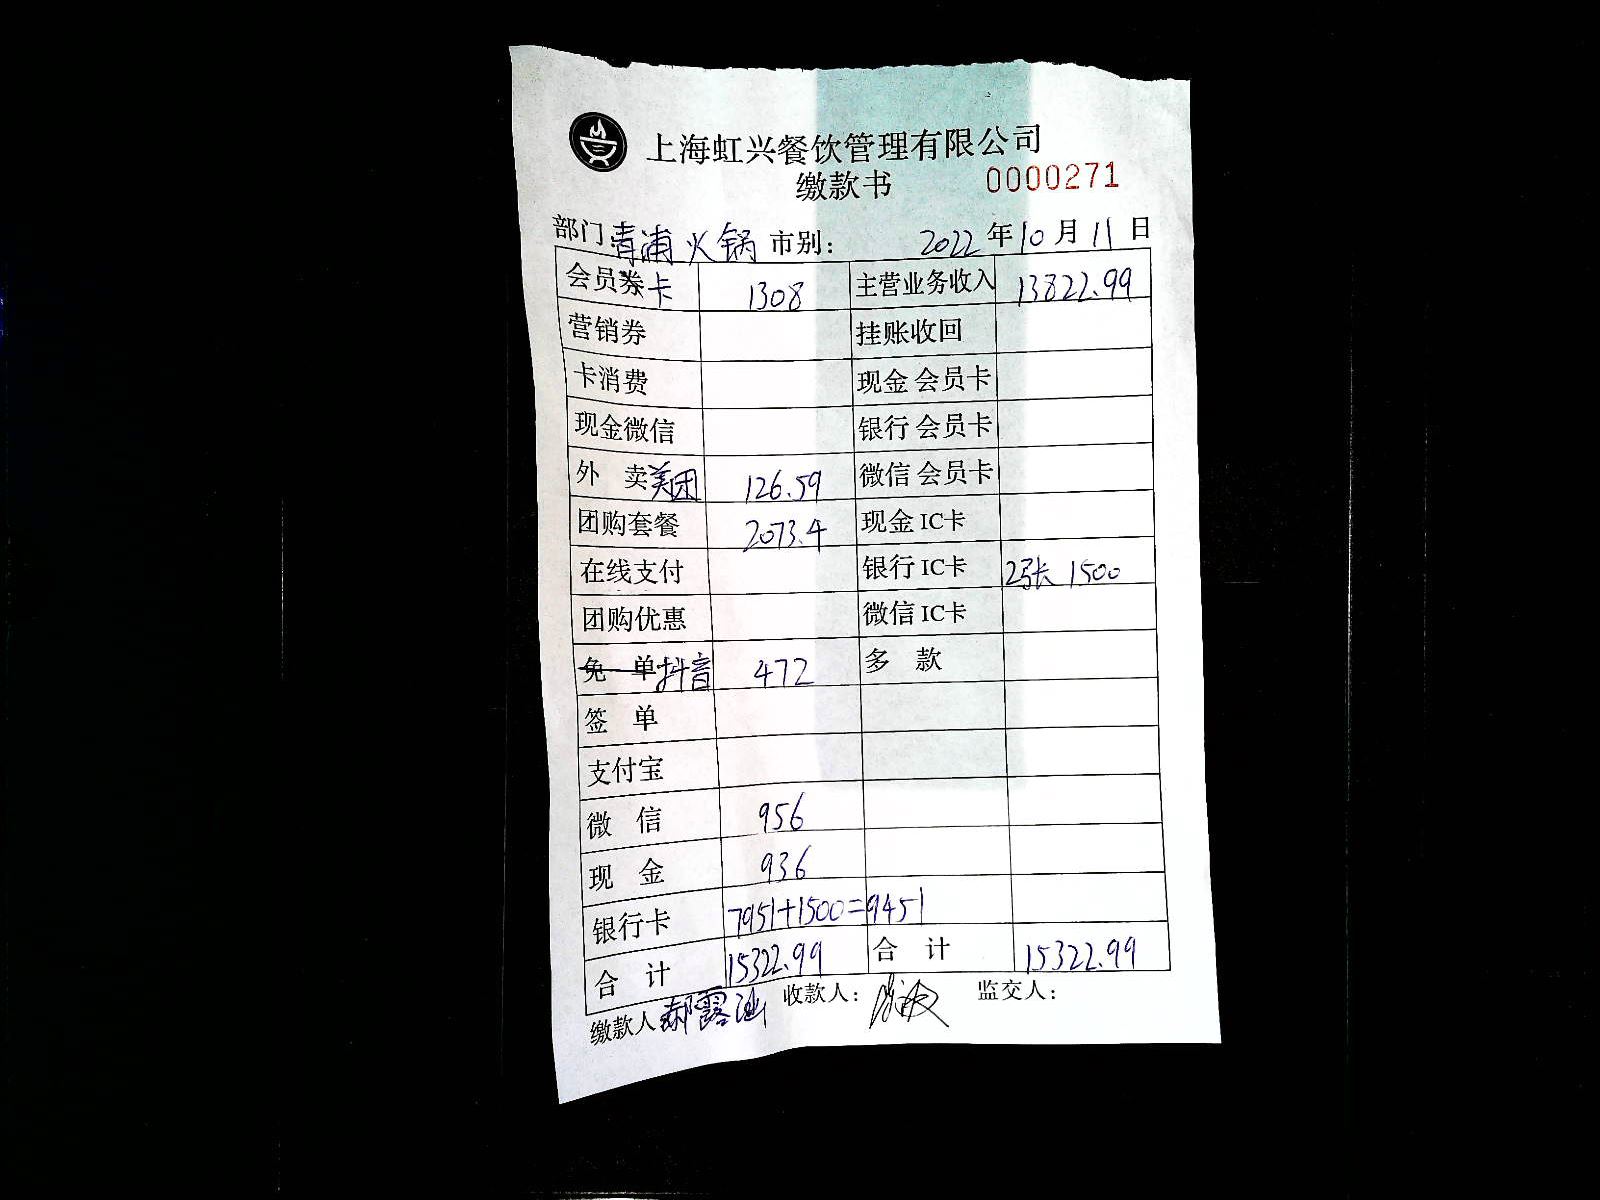 上海虹兴餐饮管理有限公司
缴款书 0000271
部门:青浦火锅 市别: 2022年10月11日
会员券卡 1308 主营业务收入 13822.99
营销券 挂账收回
卡消费 现金会员卡
现金微信 银行会员卡
外 卖美团 126.59 微信会员卡
团购套餐 2073.4 现金IC卡
在线支付 银行IC卡 2张 1500
团购优惠 微信IC卡
免 单抖音 472 多 款
签 单
支付宝
微 信 956
现 金 936
银行卡 7951+1500=9451
合 计 15322.99 合 计 15322.99
缴款人 郝露 收款人: 监交人: